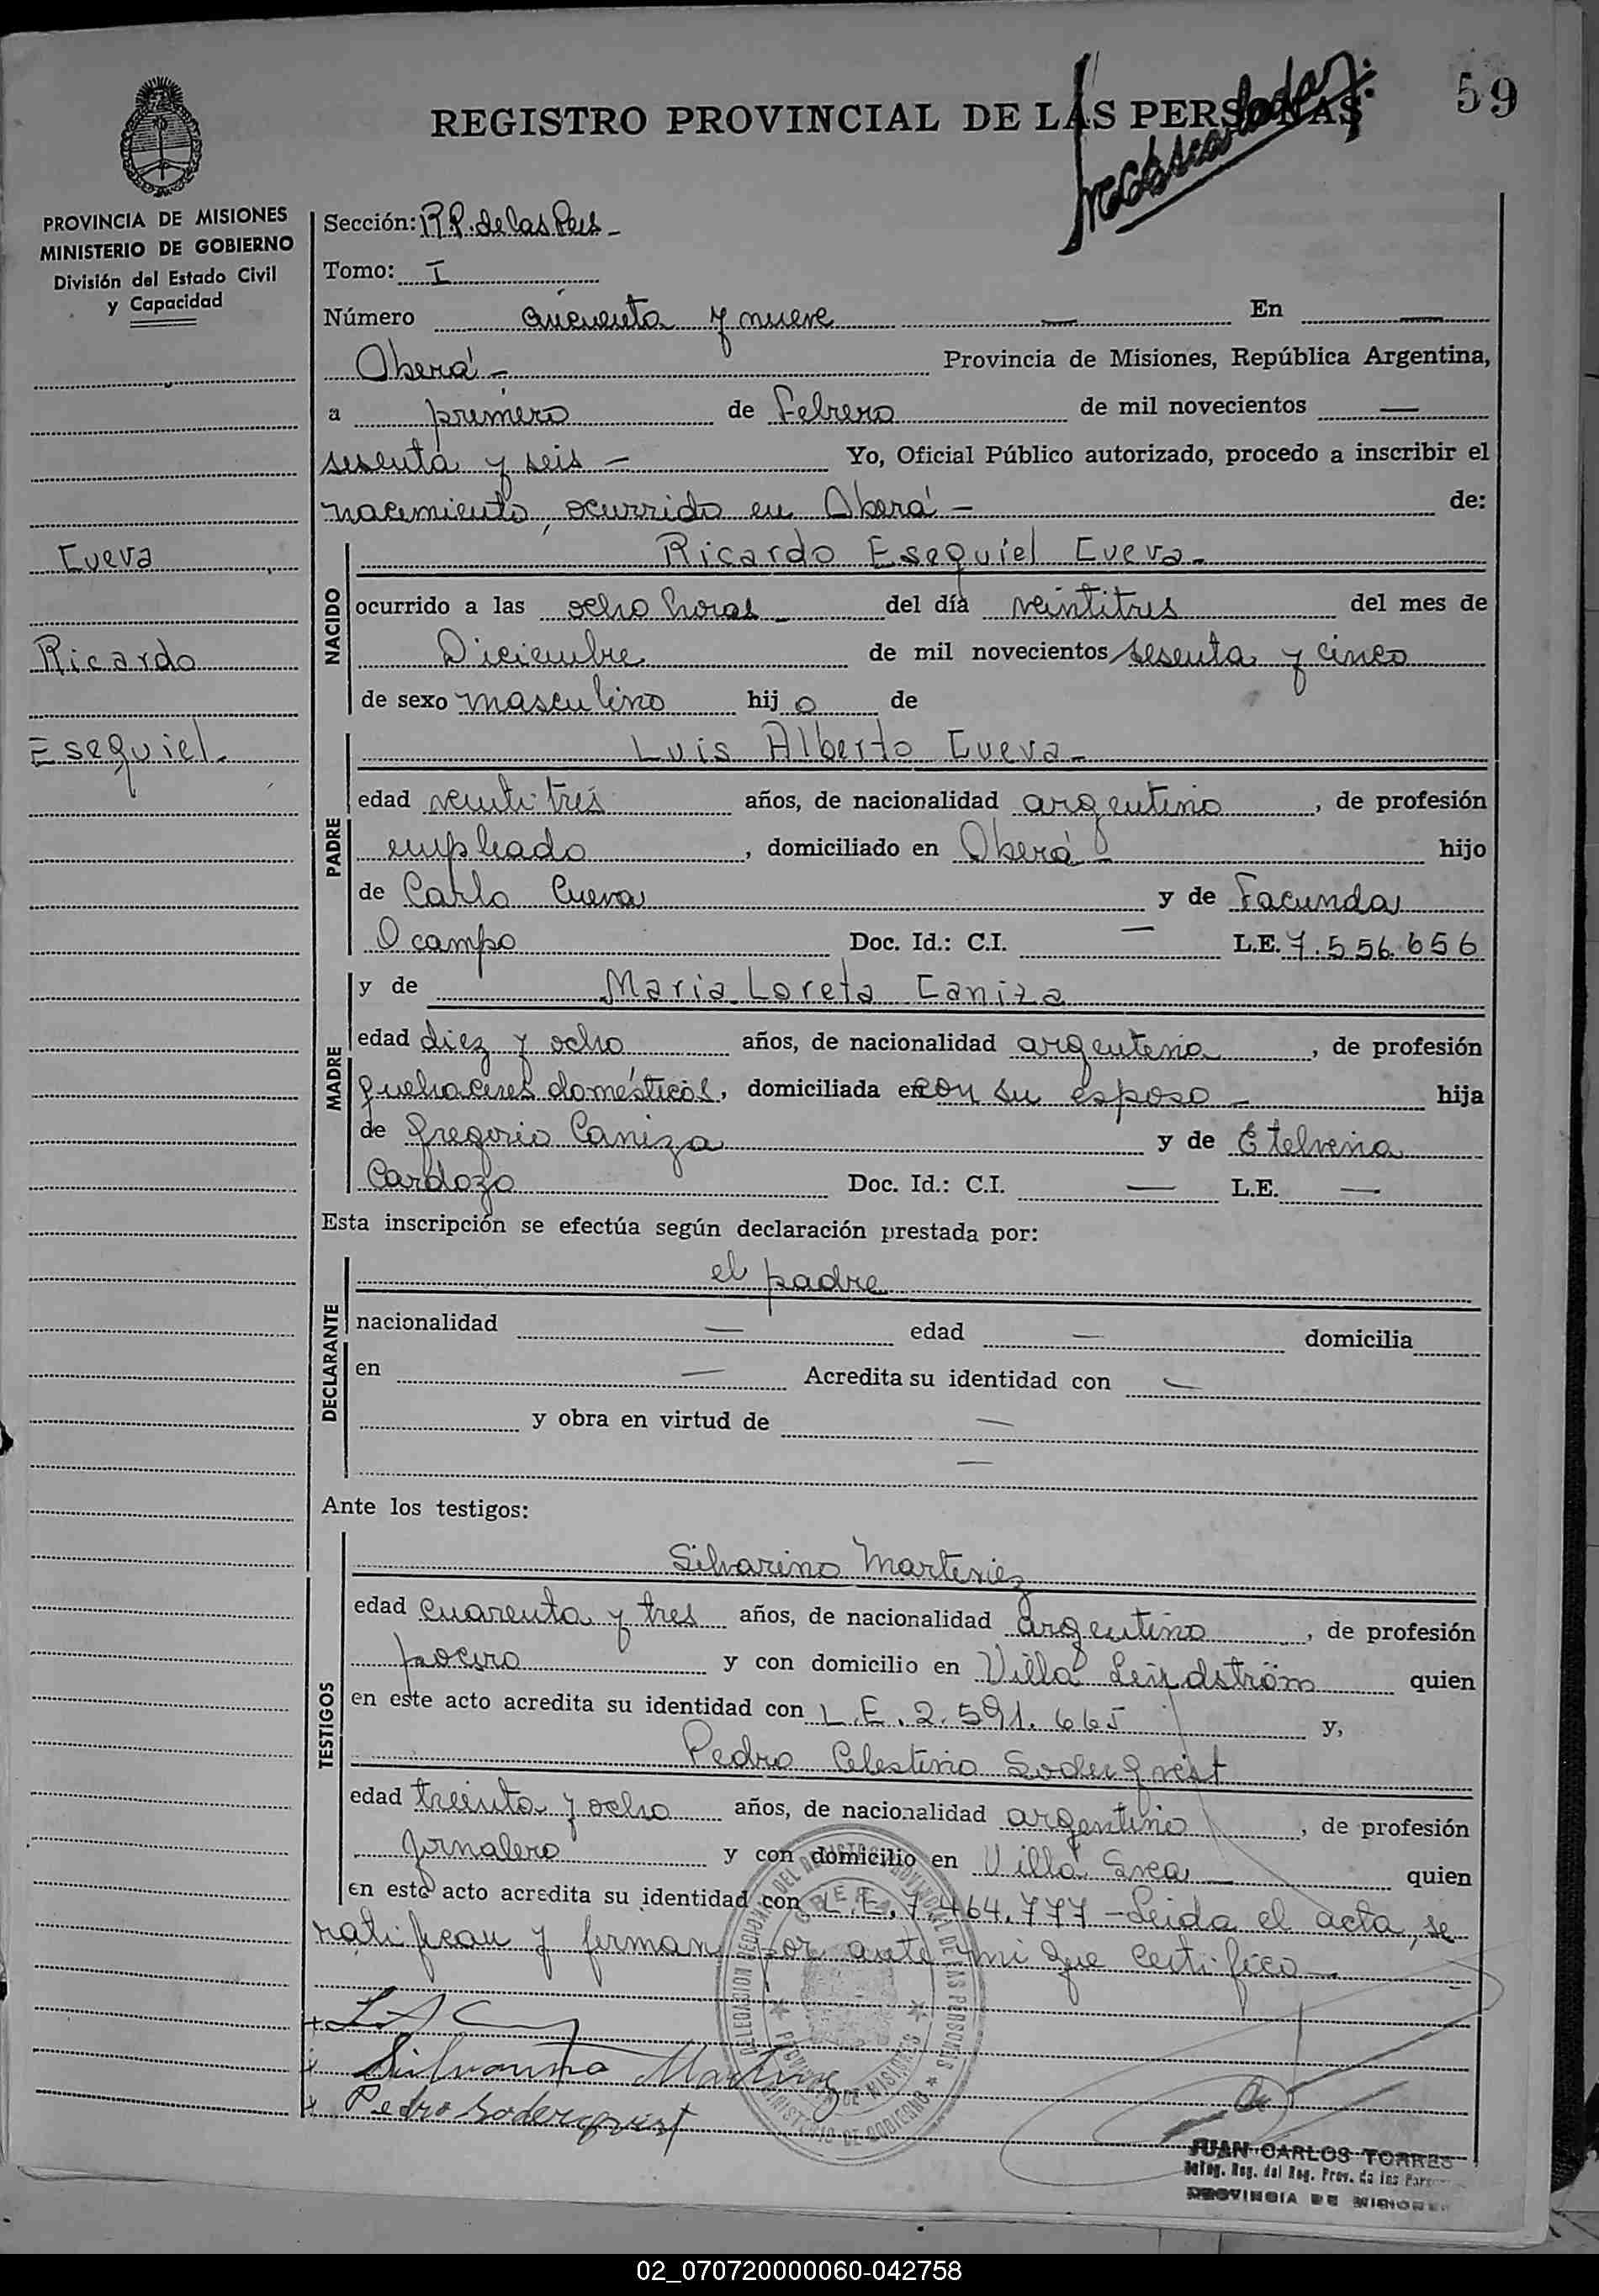 59
REGISTRO PROVINCIAL DE LAS PERSONAS
PROVINCIA DE MISIONES
MINISTERIO DE GOBIERNO
División del Estado Civil
y Capacidad
Cueva
Ricardo
Esequiel.
Sección: R.P. de las Pers -
Tomo: I
Número cincuenta y nueve — En —
Oberá - Provincia de Misiones, República Argentina,
a primero de Febrero de mil novecientos —
sesenta y seis - Yo, Oficial Público autorizado, procedo a inscribir el
nacimiento, ocurrido en Oberá - de:
NACIDO
Ricardo Esequiel Cueva -
ocurrido a las ocho horas - del día veintitres del mes de
Diciembre de mil novecientos sesenta y cinco
de sexo masculino hij o de
PADRE
Luis Alberto Cueva -
edad veintitrés años, de nacionalidad argentino, de profesión
empleado, domiciliado en Oberá - hijo
de Carlo Cueva y de Facunda
Ocampo Doc. Id.: C.I. — L.E. 7.556.656
MADRE
y de Maria Loreta Caniza
edad diez y ocho años, de nacionalidad argentina, de profesión
quehaceres domésticos, domiciliada en con su esposo - hija
de Gregorio Caniza y de Etelvina
Cardozo Doc. Id.: C.I. — L.E. —
Esta inscripción se efectúa según declaración prestada por:
DECLARANTE
el padre
nacionalidad — edad — domicilia
en — Acredita su identidad con —
y obra en virtud de —
—
Ante los testigos:
TESTIGOS
Silvarino Martinez
edad cuarenta y tres años, de nacionalidad argentino, de profesión
pocero y con domicilio en Villa Lindström quien
en este acto acredita su identidad con L.E. 2.591.665 y,
Pedro Celestino Soderqvist
edad treinta y ocho años, de nacionalidad argentino, de profesión
jornalero y con domicilio en Villa Svea - quien
en este acto acredita su identidad con L.E. 7.464.777 - Leida el acta, se
ratifican y firman por ante mi que certifico -
Silvarino Martinez
Pedro Soderqvist
DELEGACION REGIONAL DEL REGISTRO PROVINCIAL DE LAS PERSONAS
OBERA
PROVINCIA DE MISIONES
MINISTERIO DE GOBIERNO
JUAN CARLOS TORRES
Deleg. Reg. del Reg. Prov. de las Pers
PROVINCIA DE MISIONES
02_070720000060-042758